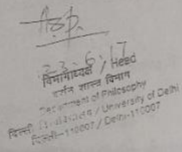 विभागाध्यक्ष / Head
दर्शन शास्त्र विभाग
Department of Philosophy
/ University of Delhi
दिल्ली-110007 / Delhi-110007